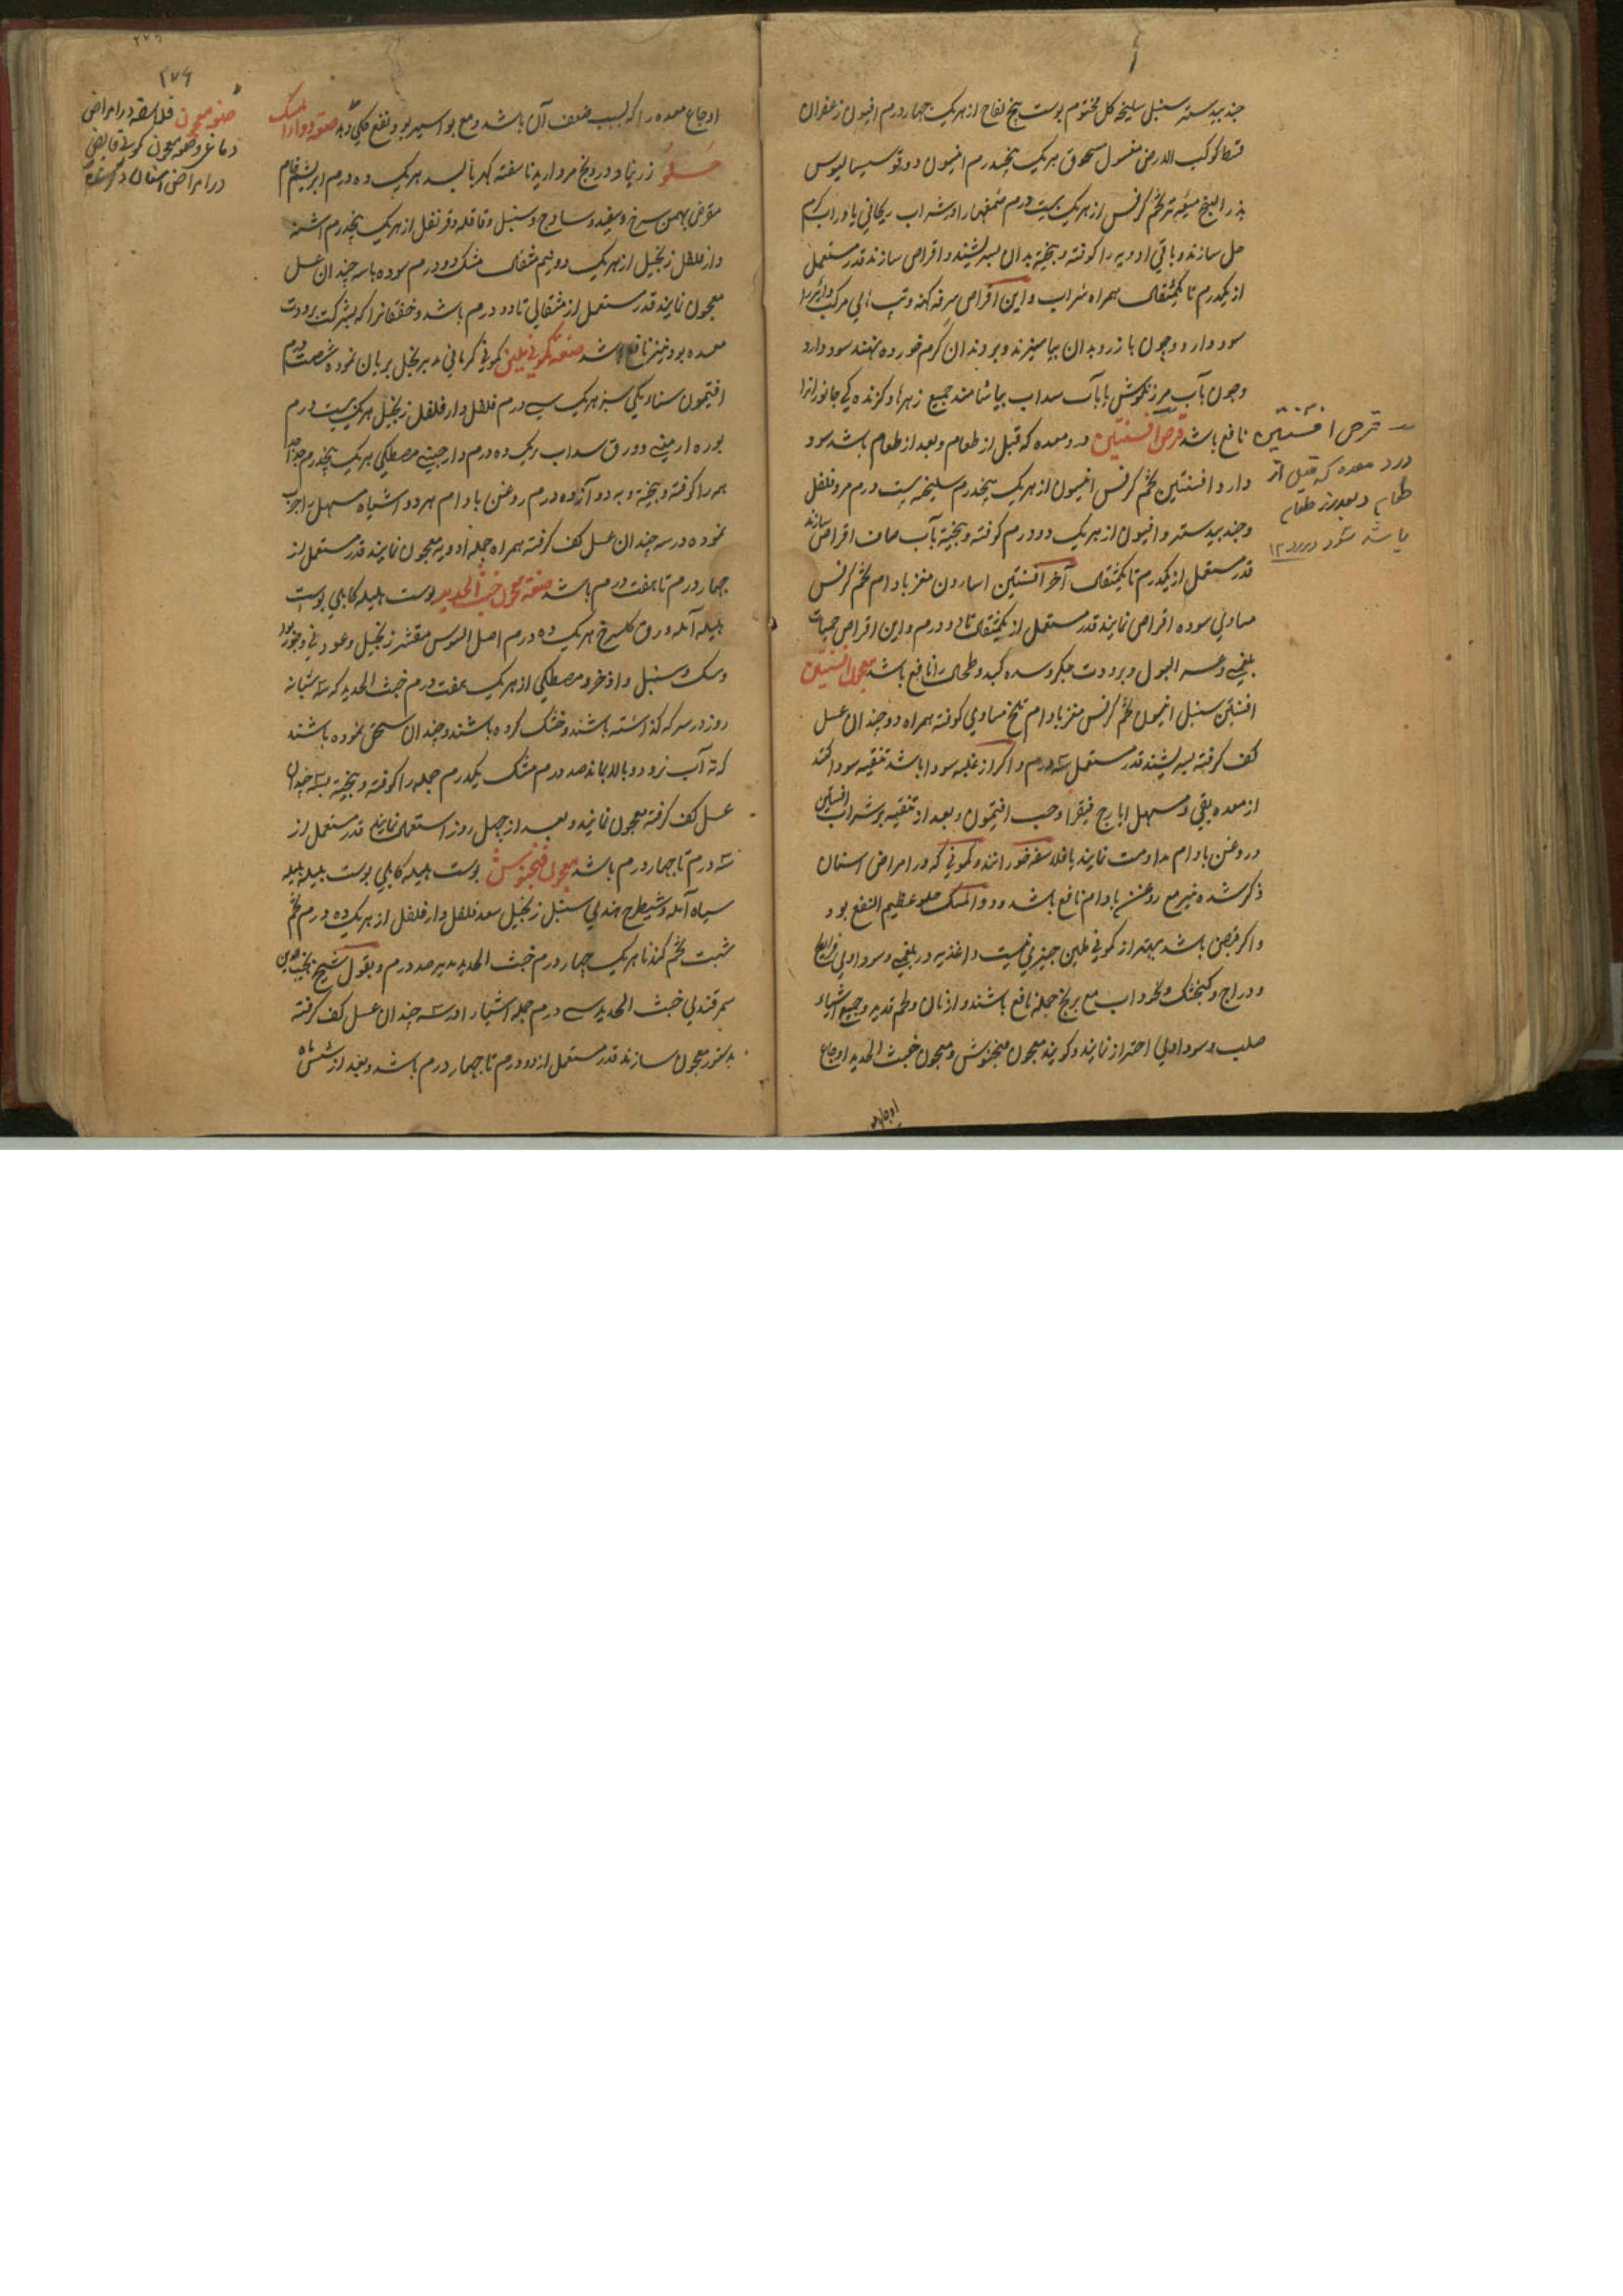 جندبیدستر سنبل سلیخه کل مختوم پوست بیخ لفاح از هر یک چهار درم افیون زعفران
قسط کوکب الارض مغسول مسحوق هر یک پنجدرم انیسون دوقو سیسالیوس
بذر البنج میعه تر تخم کرفس از هر یک بیست درم صمغها را در شراب ریحانی یا در آب کرم
حل سازند و باقی ادویه را کوفته و بیخته بدان بسرشند و اقراص سازند قدر مستعمل
از یکدرم تا یکمثقال همراه شراب و این اقراص سرفه کهنه و تب مرکب
سود دارد و چون با زرو بدان بیامیزند و بر دندان کرم خورده نهند سود دارد
و چون بآب مرزنکوش یا بآب سداب بیاشامند جمیع زهرها و کزنده کی جانورانرا
نافع باشد قرص افسنتین درد معده که قبل از طعام و بعد از طعام باشد سود
دارد افسنتین تخم کرفس انیسون از هر یک پنجدرم سلیخه بیست درم مر و فلفل
و جندبیدستر و افیون از هر یک دو درم کوفته و بیخته بآب صاف اقراص سازند
قدر مستعمل از یکدرم تا یکمثقال آخر افسنتین اسارون مغز بادام تخم کرفس
مساوی سوده اقراص نمایند قدر مستعمل از یکمثقال تا دو درم و این اقراص حمیات
بلغمی و عسر البول و برودت جکر و سده کبد و طحال را نافع باشد معجون افسنتین
افسنتین سنبل انیسون تخم کرفس مغز بادام تلخ مساوی کوفته همراه دو چندان عسل
کف کرفته بسرشند قدر مستعمل سه درم و اکر از غلبه سودا باشد تنقیه سودا کنند
از معده بقی و مسهل ایارج فیقرا و حب افتیمون و بعد از تنقیه بر شراب افسنتین
و روغن بادام مداومت نمایند یا فلاسفه خورانند و کمونی که در امراض اسنان
ذکر شده نیز مع روغن بادام نافع باشد و دواء المسک حلو عظیم النفع بود
و اکر قبض باشد بهتر از کمونی ملین چیزی نیست و اغذیه در بلغمی و سوداوی
و دراج و کنجشک و نخوداب مع برنج جمله نافع باشند و از نان و لحم قدید و جمیع اشیاء
صلب و سوداوی احتراز نمایند و کویند معجون فنجنوش و معجون خبث الحدید اوجاع
اوجاع
قرص افسنتین
درد معده که قبل از
طعام و بعد از طعام
باشد سود دارد ۱۲
۲۷۶
اوجاع معده را که بسبب ضعف آن باشد و مع بواسیر بود نفع کلی دهد صنعة دواء المسک
حلو زرنباد درونج مروارید ناسفته کهربا بسد هر یک ده درم ابریشم خام
مقرض بهمن سرخ و سفید و ساذج و سنبل و قاقله و قرنفل از هر یک پنجدرم اشنه
دارفلفل زنجبیل از هر یک دو نیم مثقال مشک دو درم سوده با سه چندان عسل
معجون نمایند قدر مستعمل از مثقالی تا دو درم باشد و خفقانرا که بشرکت برودت
معده بود نیز نافع باشد صنعة کمونی ملین کمونی کرمانی مدبر بخل بریان نموده شصت درم
افتیمون سناء مکی سبز هر یک سی درم فلفل دارفلفل زنجبیل هر یک بیست درم
بوره ارمنی و ورق سداب هر یک ده درم دارچینی مصطکی هر یک پنجدرم
همه را کوفته و بیخته و به دوازده درم روغن بادام هر دو اشیاء مسهل را چرب
نموده در سه چندان عسل کف کرفته همراه جمله ادویه معجون نمایند قدر مستعمل از
چهار درم تا هفت درم باشد صنعة معجون خبث الحدید پوست هلیله کابلی پوست
بلیله آمله ورق کلسرخ هر یک ده درم اصل السوس مقشر زنجبیل و عود نی و جوزبوا
و سک و سنبل و اذخر و مصطکی از هر یک هفت درم خبث الحدید که سه شبانه
روز در سرکه کذاشته باشند و خشک کرده باشند و چندان سحق نموده باشند
که ته آب نرود و بالا بماند صد درم مشک یکدرم جمله را کوفته و بیخته بسه چندان
عسل کف کرفته معجون نمایند و بعد از چهل روز استعمال نمایند قدر مستعمل از
سه درم تا چهار درم باشد معجون فنجنوش پوست هلیله کابلی پوست بلیله هلیله
سیاه آمله و شیطرج هندی سنبل زنجبیل سعد فلفل دارفلفل از هر یک ده درم تخم
شبت تخم کندنا هر یک چهار درم خبث الحدید مدبر صد درم و بقول شیخ نجیب الدین
سمرقندی خبث الحدید سی درم جمله اشیا را در سه چندان عسل کف کرفته
بدستور معجون سازند قدر مستعمل از دو درم تا چهار درم باشد و بعد از شش ماه
صنعة معجون فلاسفه در امراض
دماغ و صنعة معجون کمونی قابض
در امراض اسنان ذکر شده